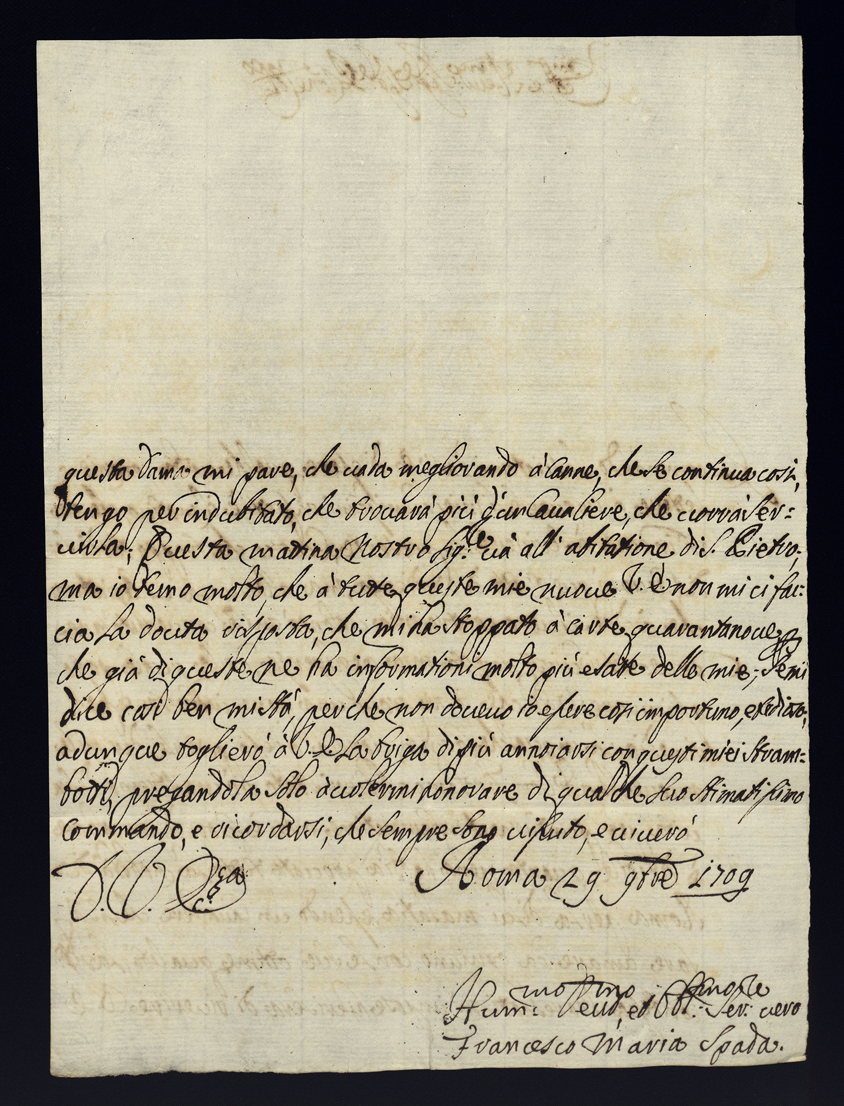 questa Dama mi pare, che vada megliorando à Canne, che se continua così,
tengo per indubitato, che trovarà più d'un Cavaliere, che vorrà ser=
virla; Questa mattina Nostro Sig.re và all' abitatione di S. Pietro,
ma io temo molto, che à tutte queste mie nuove V. E. non mi ci fac=
cia la dovuta risposta, che m'ha stoppato à carte quarantanove,
che già di queste ne ha informationi molto più esate delle mie; Se mi
dice così ben mi stà, perche non dovevo io essere così importuno,
adunque toglierò à V. E. la briga di più annoiarsi con questi miei stram=
botti, pregandola solo à volermi honorare di qualche suo stimatissimo
commando, e ricordarsi, che sempre sono vissuto, e viverò
D. V. Ecc.za Roma 29 9bre 1709
Hum.mo Dev.mo, et Obl.mo Ser.re vero
Francesco Maria Spada.